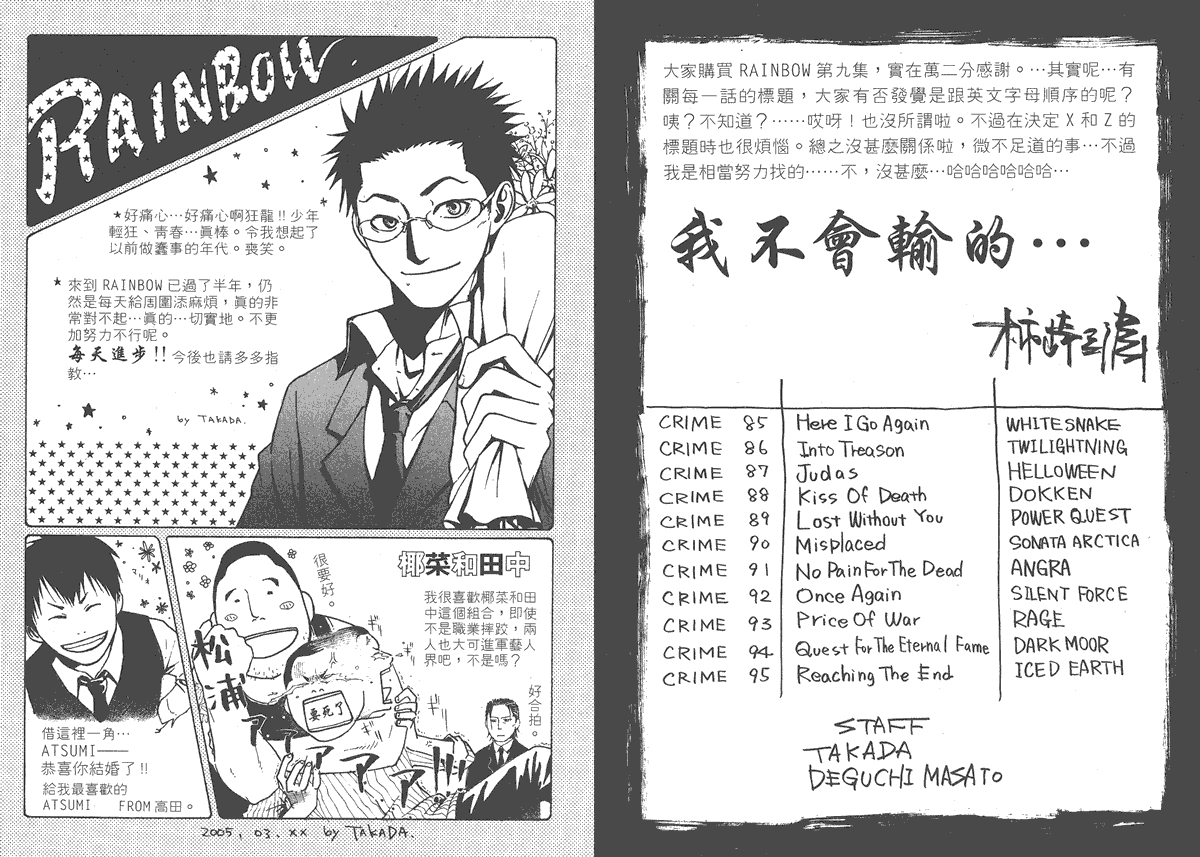 RAINBOW
★好痛心…好痛心啊狂龍!!少年
輕狂、靑春…眞棒。令我想起了
以前做蠢事的年代。喪笑。
★ 來到 RAINBOW 已過了半年，仍
然是每天給周圍添麻煩，眞的非
常對不起…眞的…切實地。不更
加努力不行呢。
每天進步!!今後也請多多指
教…
by TAKADA.
借這裡一角…
ATSUMI——
恭喜你結婚了!!
給我最喜歡的
ATSUMI FROM高田。
很要好。
松浦
要死了
アァァァァ!!!
椰菜和田中
我很喜歡椰菜和田
中這個組合，即使
不是職業摔跤，兩
人也大可進軍藝人
界吧，不是嗎？
好合拍。
2005. 03. ×× by TAKADA.
大家購買 RAINBOW 第九集，實在萬二分感謝。…其實呢…有
關每一話的標題，大家有否發覺是跟英文字母順序的呢？
咦？不知道？……哎呀！也沒所謂啦。不過在決定 X 和 Z 的
標題時也很煩惱。總之沒甚麼關係啦，微不足道的事…不過
我是相當努力找的……不，沒甚麼…哈哈哈哈哈哈…
我不會輸的…
CRIME 85 Here I Go Again WHITESNAKE
CRIME 86 Into Treason TWILIGHTNING
CRIME 87 Judas HELLOWEEN
CRIME 88 Kiss Of Death DOKKEN
CRIME 89 Lost Without You POWER QUEST
CRIME 90 Misplaced SONATA ARCTICA
CRIME 91 No Pain For The Dead ANGRA
CRIME 92 Once Again SILENT FORCE
CRIME 93 Price Of War RAGE
CRIME 94 Quest For The Eternal Fame DARK MOOR
CRIME 95 Reaching The End ICED EARTH
STAFF
TAKADA
DEGUCHI MASATO